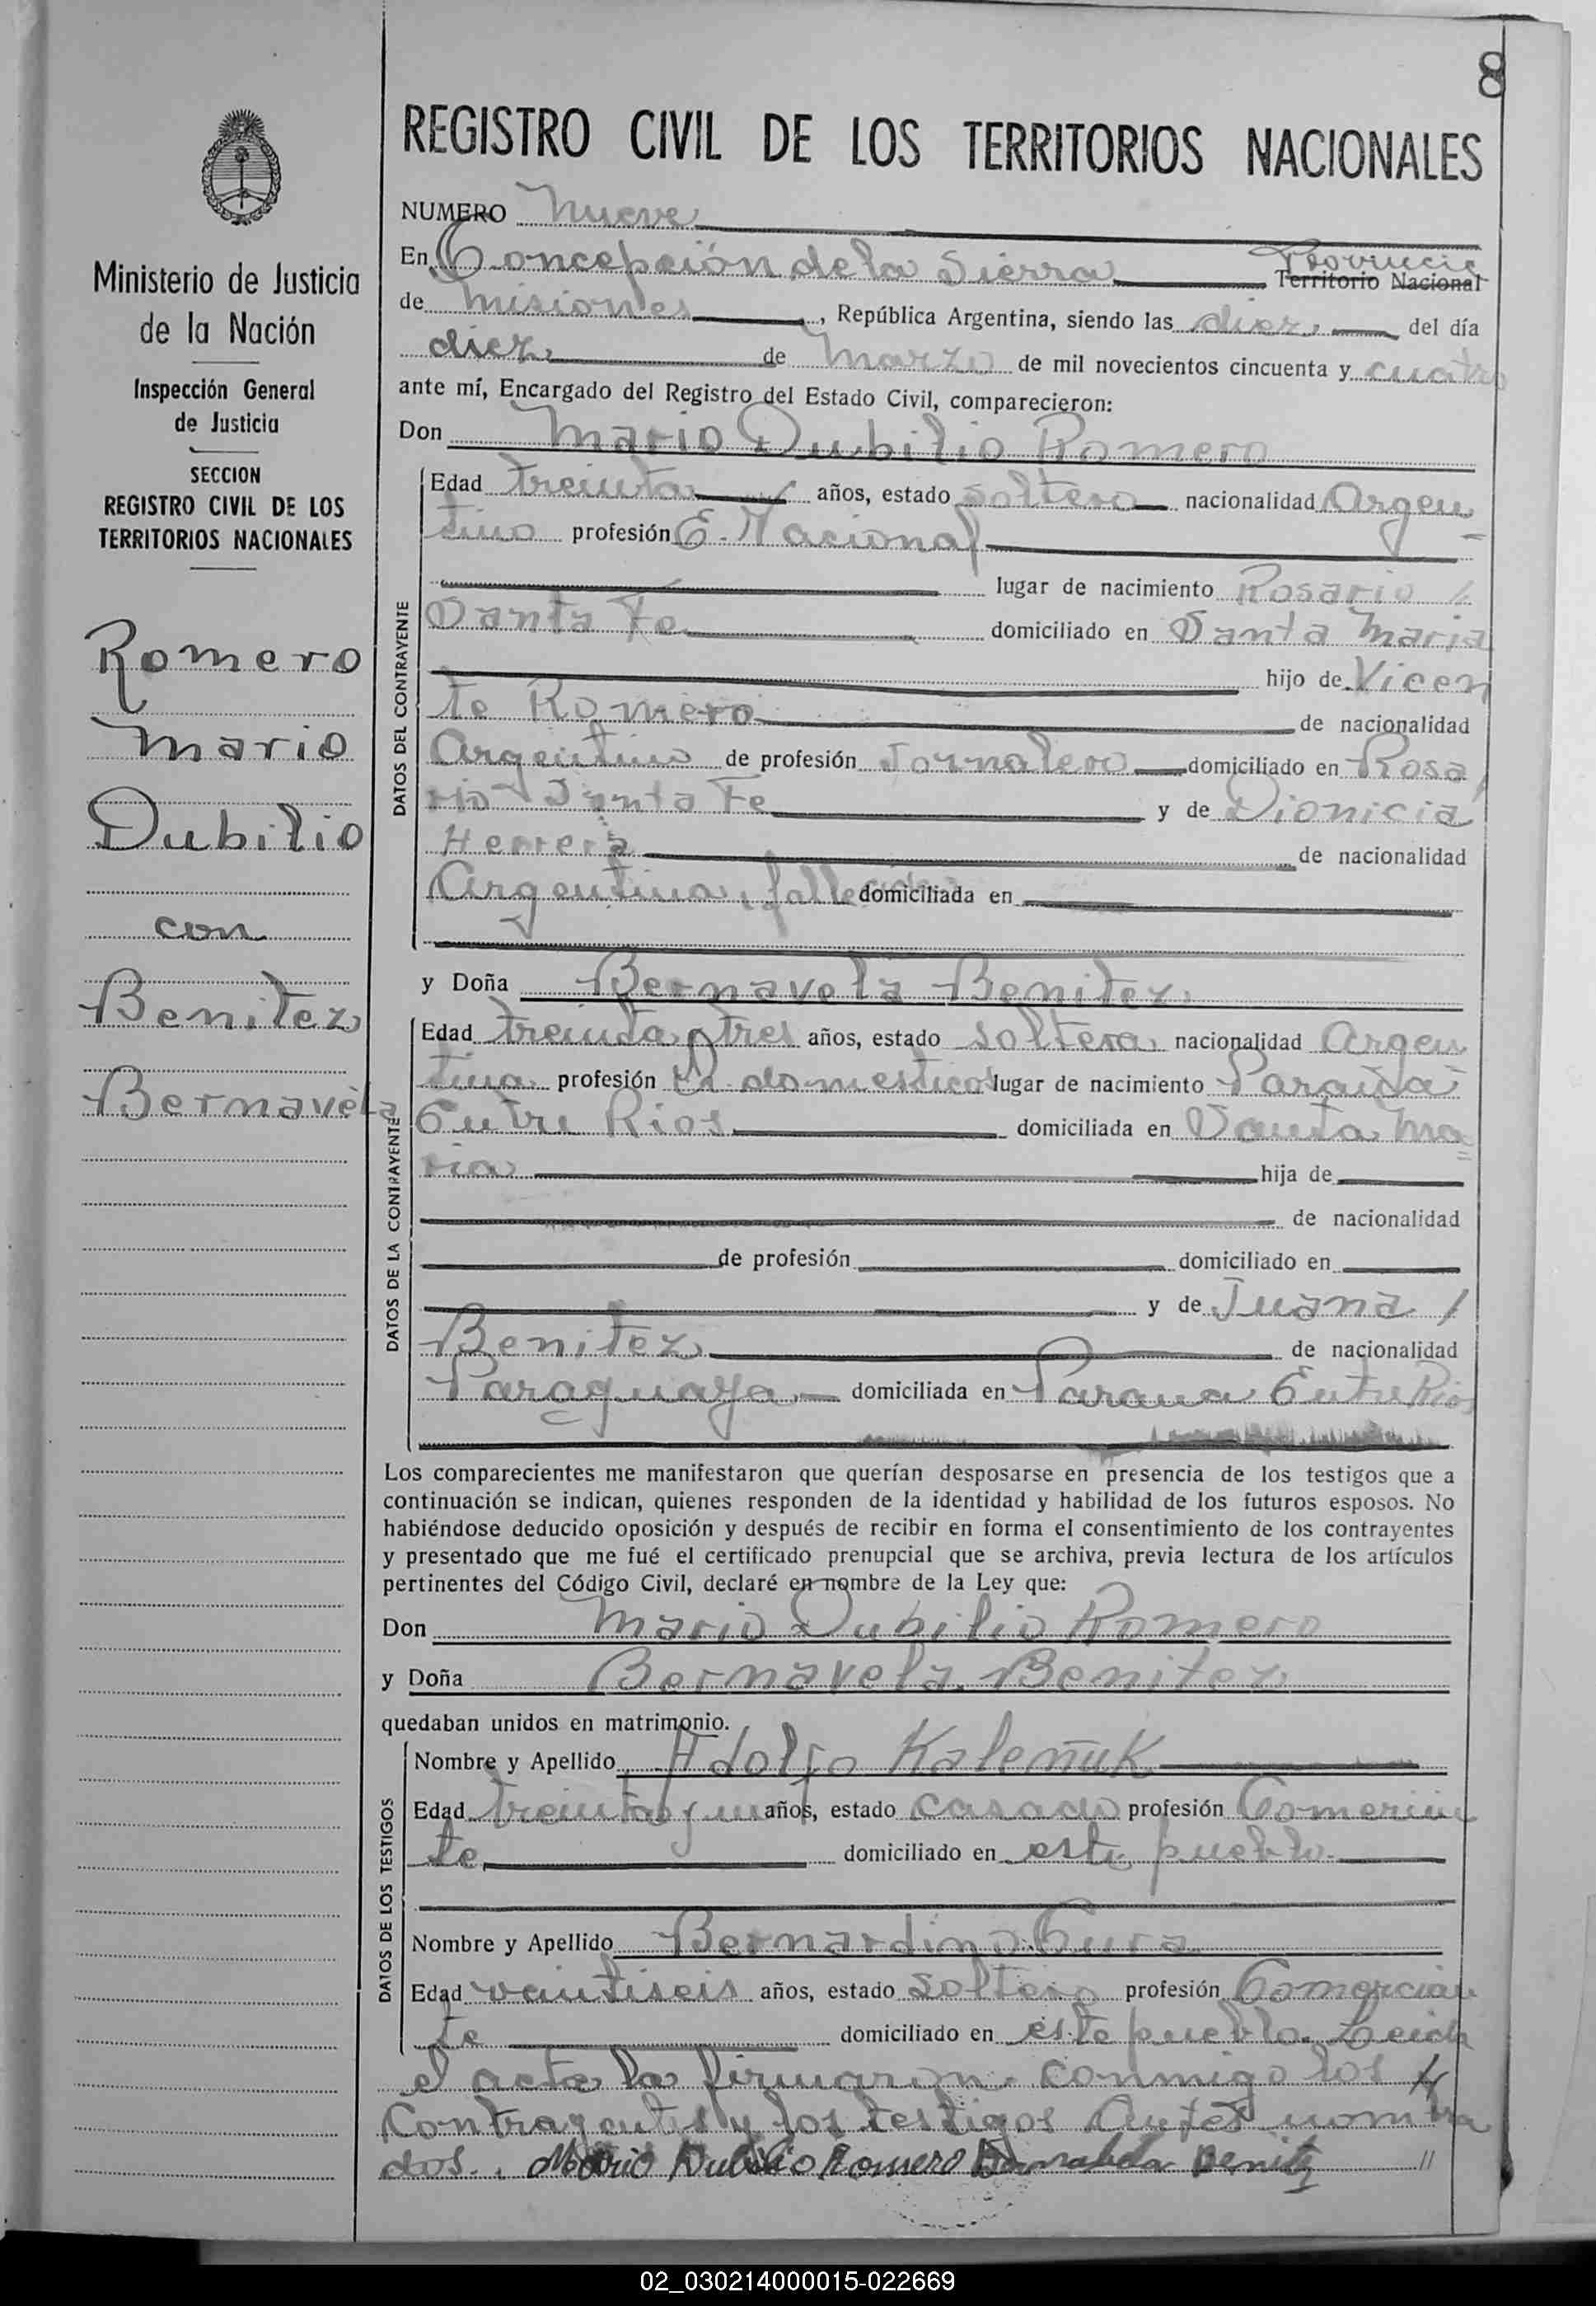 8
REGISTRO CIVIL DE LOS TERRITORIOS NACIONALES
Ministerio de Justicia
de la Nación
Inspección General
de Justicia
SECCION
REGISTRO CIVIL DE LOS
TERRITORIOS NACIONALES
Romero
Mario
Dubilio
con
Benitez
Bernavela
NUMERO Nueve
En Concepción de la Sierra Provincia Territorio Nacional
de Misiones, República Argentina, siendo las diez, del día
diez, de Marzo de mil novecientos cincuenta y cuatro
ante mí, Encargado del Registro del Estado Civil, comparecieron:
Don Mario Dubilio Romero
DATOS DEL CONTRAYENTE
Edad treinta años, estado soltero nacionalidad Argen
tino profesión E. Nacional
lugar de nacimiento Rosario
Santa Fe domiciliado en Santa Maria
hijo de Vicen
te Romero de nacionalidad
Argentino de profesión Jornalero domiciliado en Rosa
rio Santa Fe y de Dionicia
Herrera de nacionalidad
Argentina, fallecida domiciliada en
y Doña Bernavela Benitez
DATOS DE LA CONTRAYENTE
Edad treinta y tres años, estado soltera nacionalidad Argen
tina profesión Q. domesticos lugar de nacimiento
Entre Rios domiciliada en Santa Ma
ria hija de
de nacionalidad
de profesión domiciliado en
y de Juana
Benitez de nacionalidad
Paraguaya, domiciliada en Parana Entre Rios
Los comparecientes me manifestaron que querían desposarse en presencia de los testigos que a
continuación se indican, quienes responden de la identidad y habilidad de los futuros esposos. No
habiéndose deducido oposición y después de recibir en forma el consentimiento de los contrayentes
y presentado que me fué el certificado prenupcial que se archiva, previa lectura de los artículos
pertinentes del Código Civil, declaré en nombre de la Ley que:
Don Mario Dubilio Romero
y Doña Bernavela Benitez
quedaban unidos en matrimonio.
DATOS DE LOS TESTIGOS
Nombre y Apellido Adolfo Kaleñuk
Edad treinta y un años, estado casado profesión Comercian
te domiciliado en este pueblo.
Nombre y Apellido Bernardino Cura
Edad veintiseis años, estado soltero profesión Comercian
te domiciliado en este pueblo. Leida
el acta la firmaron conmigo los
Contrayentes y los testigos Antes nombra
dos. Mario Dubilio Romero Bernabela Benitez //
02_030214000015-022669